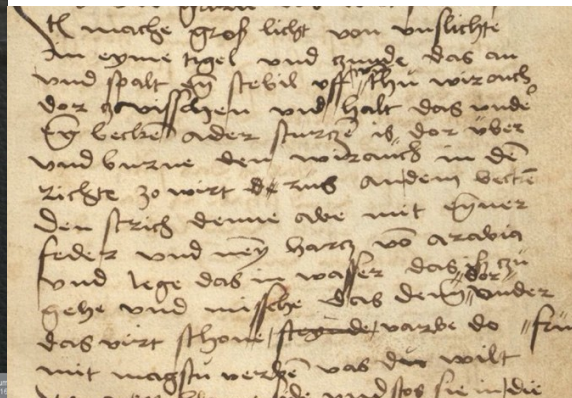 mache groß licht von vnslichte
in eyme tigel vnd czunde das an
vnd spalt eȳ stebil vff thu wirauch
dor zwisschen vnd halt das vnde
eȳ becke ader sturcze is dor vber
vnd burne den wirauch in dē
richte zo wirt d rus an dem beckē
den strich denne abe mit eȳner
feder vnd nem harcz vō arabia
vnd lege das in wasser das is czu
gehe vnd missche das den dor vnder
das wirt schone varbe do
mit magstu was du wilt
vnd stos sie in die